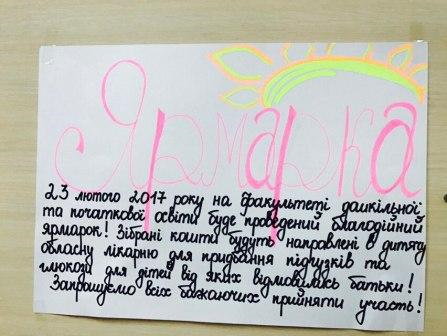 Ярмарка
23 лютого 2017 року на факультеті дошкільної
та початкової освіти буде проведений благодійний
ярмарок! Зібрані кошти будуть направлені в дитячу
обласну лікарню для придбання підгузків та
глюкози для дітей від яких відмовились батьки!
Запрошуємо всіх бажаючих прийняти участь!